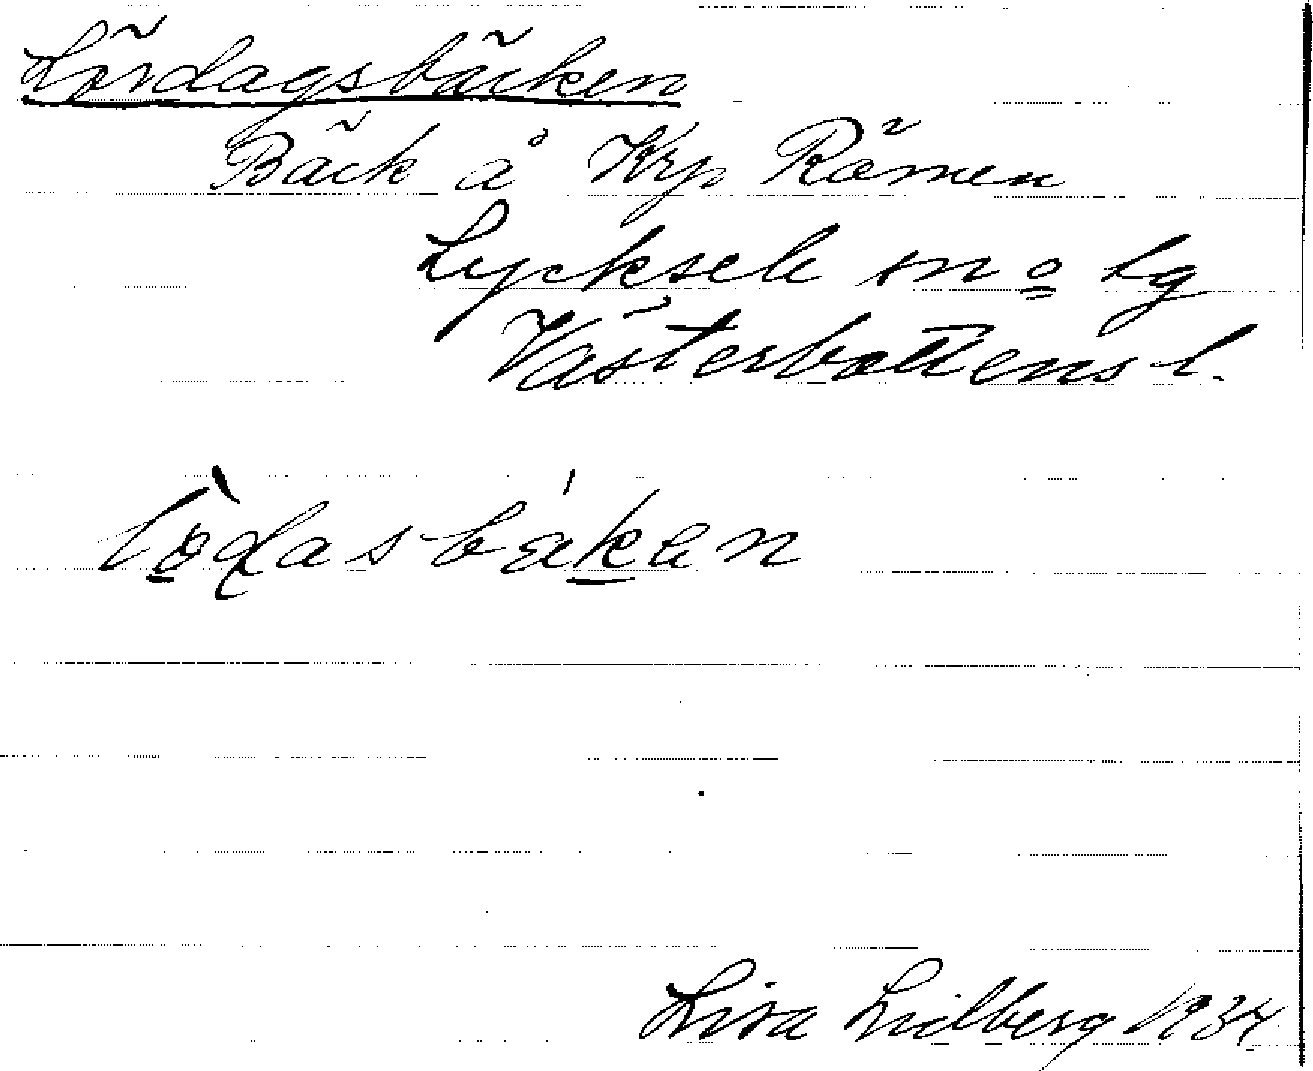 Lördagsbäcken
Bäck å Krp Råmen
Lycksele sn o lg
Västerbottens l.
lòdasbákan
Lisa Lidberg 1934